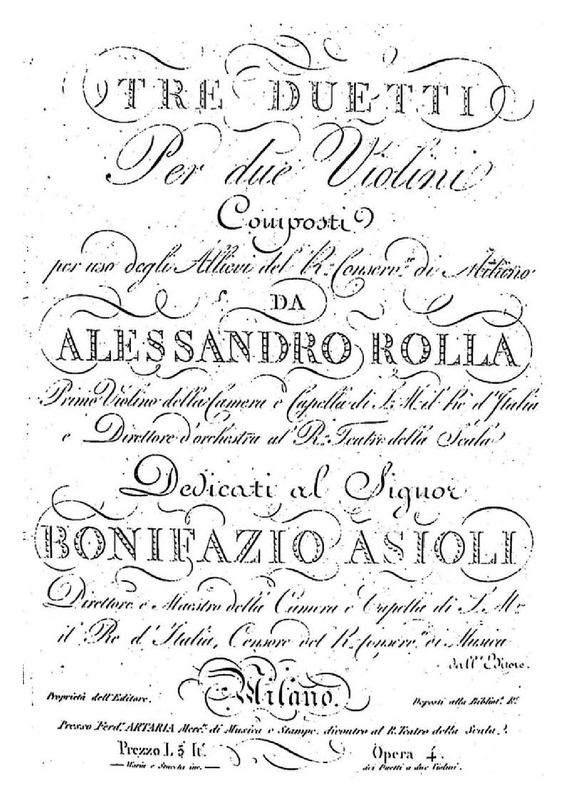 TRE DUETTI
Per due Violini
Composti
per uso degli Allievi del R.o Conserv.o di Milano
DA
ALESSANDRO ROLLA
Primo Violino della Camera e Capella di S. M. il Rè d'Italia
e Direttore d'orchestra al R.o Teatro della Scala
Dedicati al Signor
BONIFAZIO ASIOLI
Direttore e Maestro della Camera e Capella di S. M.
il Re d'Italia, Censore del R. Conserv.o di Musica
dall' Editore.
Milano.
Proprietà dell'Editore. Deposti alla Bibliot. R.l
Presso Ferd. ARTARIA Merc. di Musica e Stampe, dicontro al R. Teatro della Scala.
Prezzo L 5 It. Opera 4.
inc. dei Duetti a due Violini.